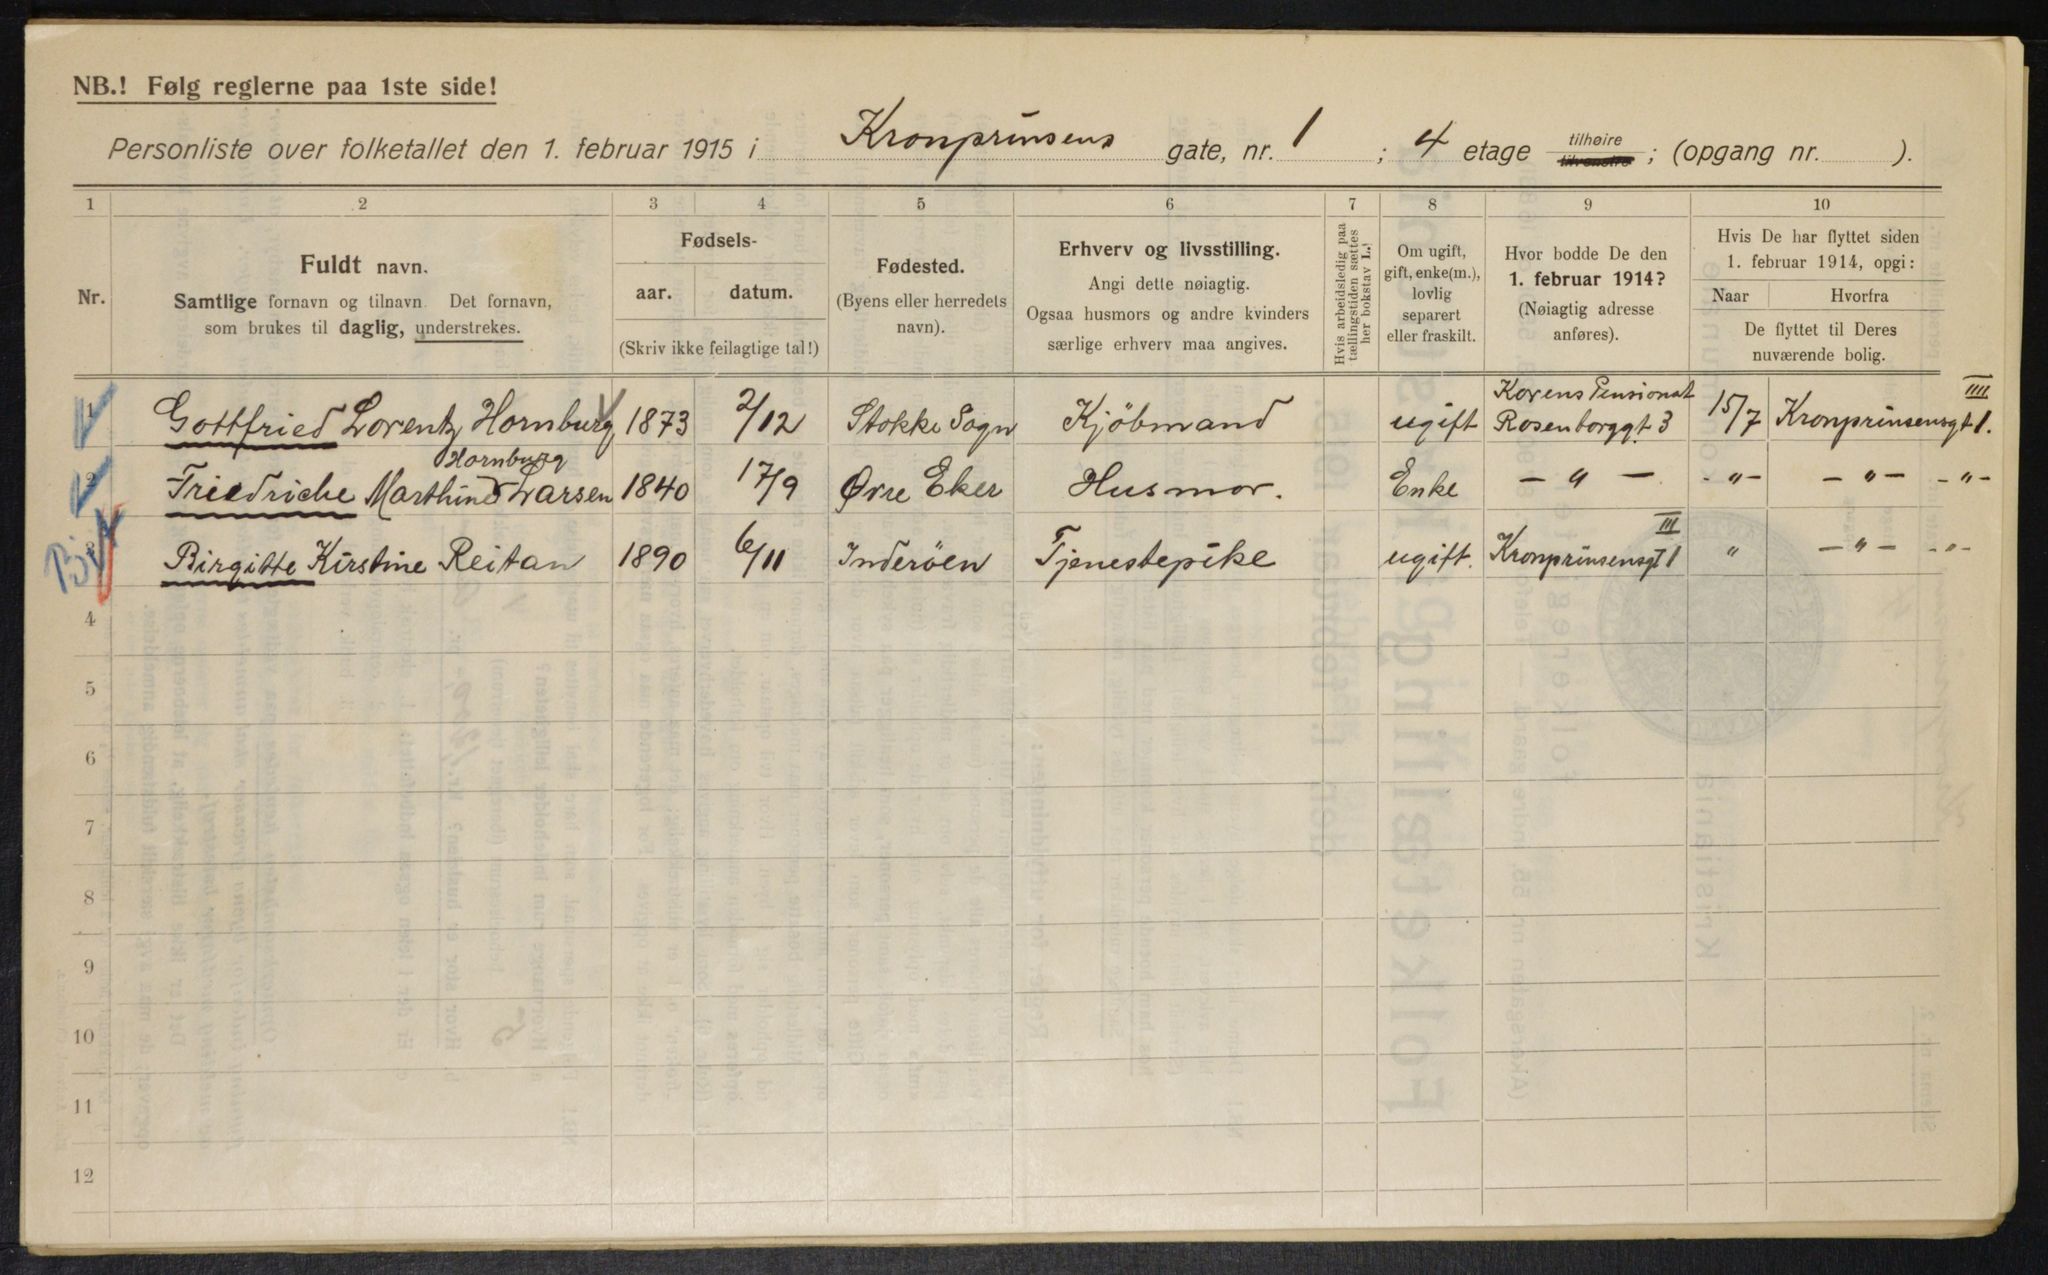 NB.! Følg reglerne paa 1ste side!
Personliste over folketallet den 1. februar 1915 i Kronprinsens gate, nr. 1 ; 4 etage tilhøire tilvenstre ; (opgang nr. ).
1 2 3 4 5 6 7 8 9 10
Nr.
Fuldt navn.
Samtlige fornavn og tilnavn. Det fornavn,
som brukes til daglig, understrekes.
Fødsels-
aar. datum.
(Skriv ikke feilagtige tal!)
Fødested.
(Byens eller herredets
navn).
Erhverv og livsstilling.
Angi dette nøiagtig.
Ogsaa husmors og andre kvinders
særlige erhverv maa angives.
Hvis arbeidsledig paa
tællingstiden sættes
her bokstav L.!
Om ugift,
gift, enke(m.),
lovlig
separert
eller fraskilt.
Hvor bodde De den
1. februar 1914?
(Nøiagtig adresse
anføres).
Hvis De har flyttet siden
1. februar 1914, opgi:
Naar Hvorfra
De flyttet til Deres
nuværende bolig.
Korens Pensionat IIII
1 Gottfried Lorentz Hornburg 1873 2/12 Stokke Sogn Kjöbmand ugift Rosenborggt 3 15/7 Kronprinsensgt 1.
Hornburg
2 Friedriche Marthine Larsen 1840 17/9 Øvre Eker Husmor. Enke — " — - " - — " — - " -
III
3 Birgitte Kirstine Reitan 1890 6/11 Inderöen Tjenestepike ugift. Kronprinsensgt 1 " — " — - " -
4
5
6
7
8
9
10
11
12